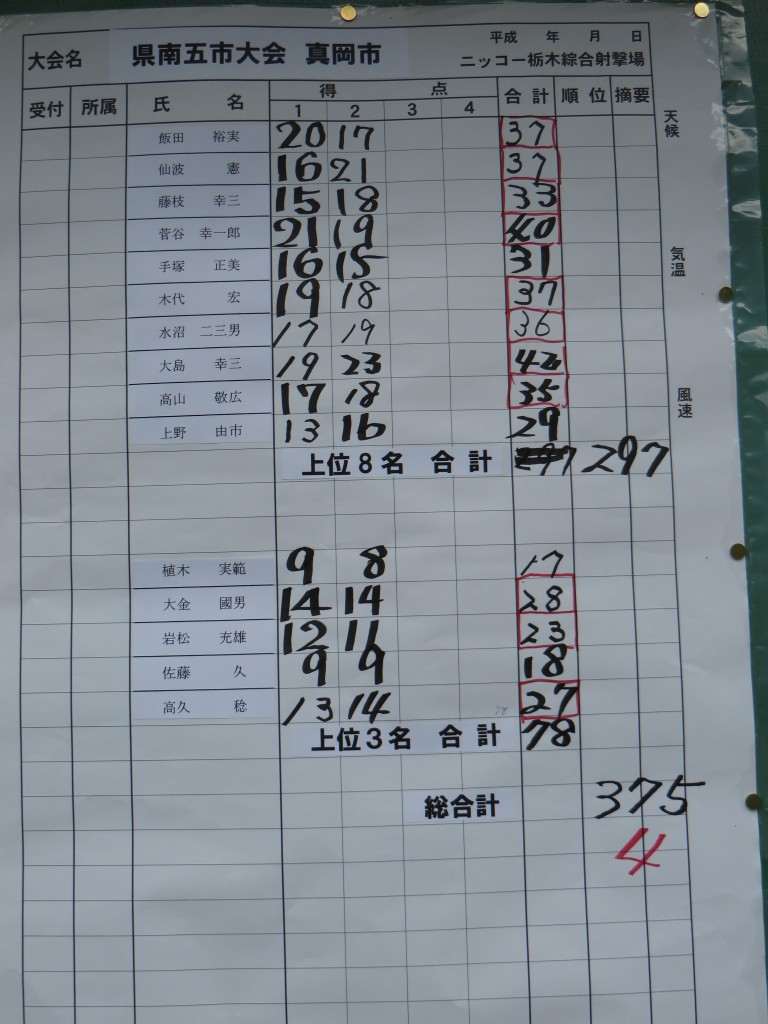 平成 年 月 日
大会名 県南五市大会 真岡市 ニッコー栃木綜合射撃場
受付 所属 氏 名 得 点 合計 順位 摘要
1 2 3 4
天候
飯田 裕実 20 17 37
仙波 憲 16 21 37
藤枝 幸三 15 18 33
菅谷 幸一郎 21 19 40
気温
手塚 正美 16 15 31
木代 宏 19 18 37
水沼 二三男 17 19 36
大島 幸三 19 23 42
風速
高山 敬広 17 18 35
上野 由市 13 16 29
上位8名 合計 297
植木 実範 9 8 17
大金 國男 14 14 28
岩松 充雄 12 11 23
佐藤 久 9 9 18
高久 稔 13 14 27
上位3名 合計 78 78
総合計 375
4